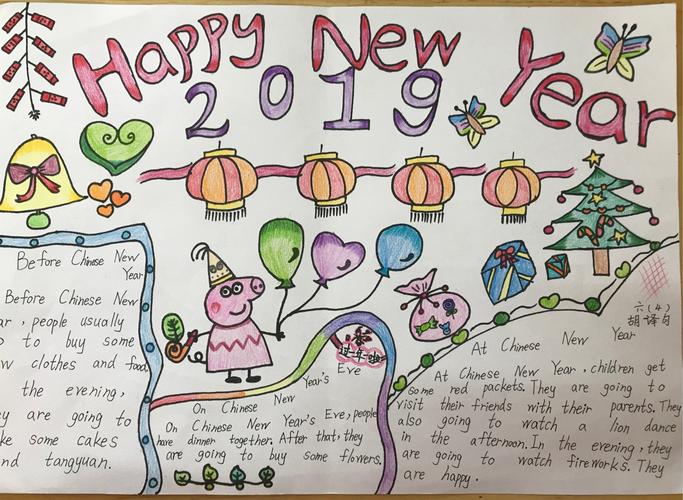 Happy New Year
2019
Before Chinese New
Year
Before Chinese New
ar , people usually
to buy some
w clothes and food
the evening,
y are going to
ke some cakes
nd tangyuan.
过年啦
On Chinese New Year's Eve
On Chinese New Year's Eve, people
have dinner together. After that, they
are going to buy some flowers.
六(4)
胡译匀
At Chinese New Year
At Chinese New Year , children get
some red packets. They are going to
visit their friends with their parents. They
also going to watch a lion dance
in the afternoon. In the evening, they
are going to watch fireworks. They
are happy.